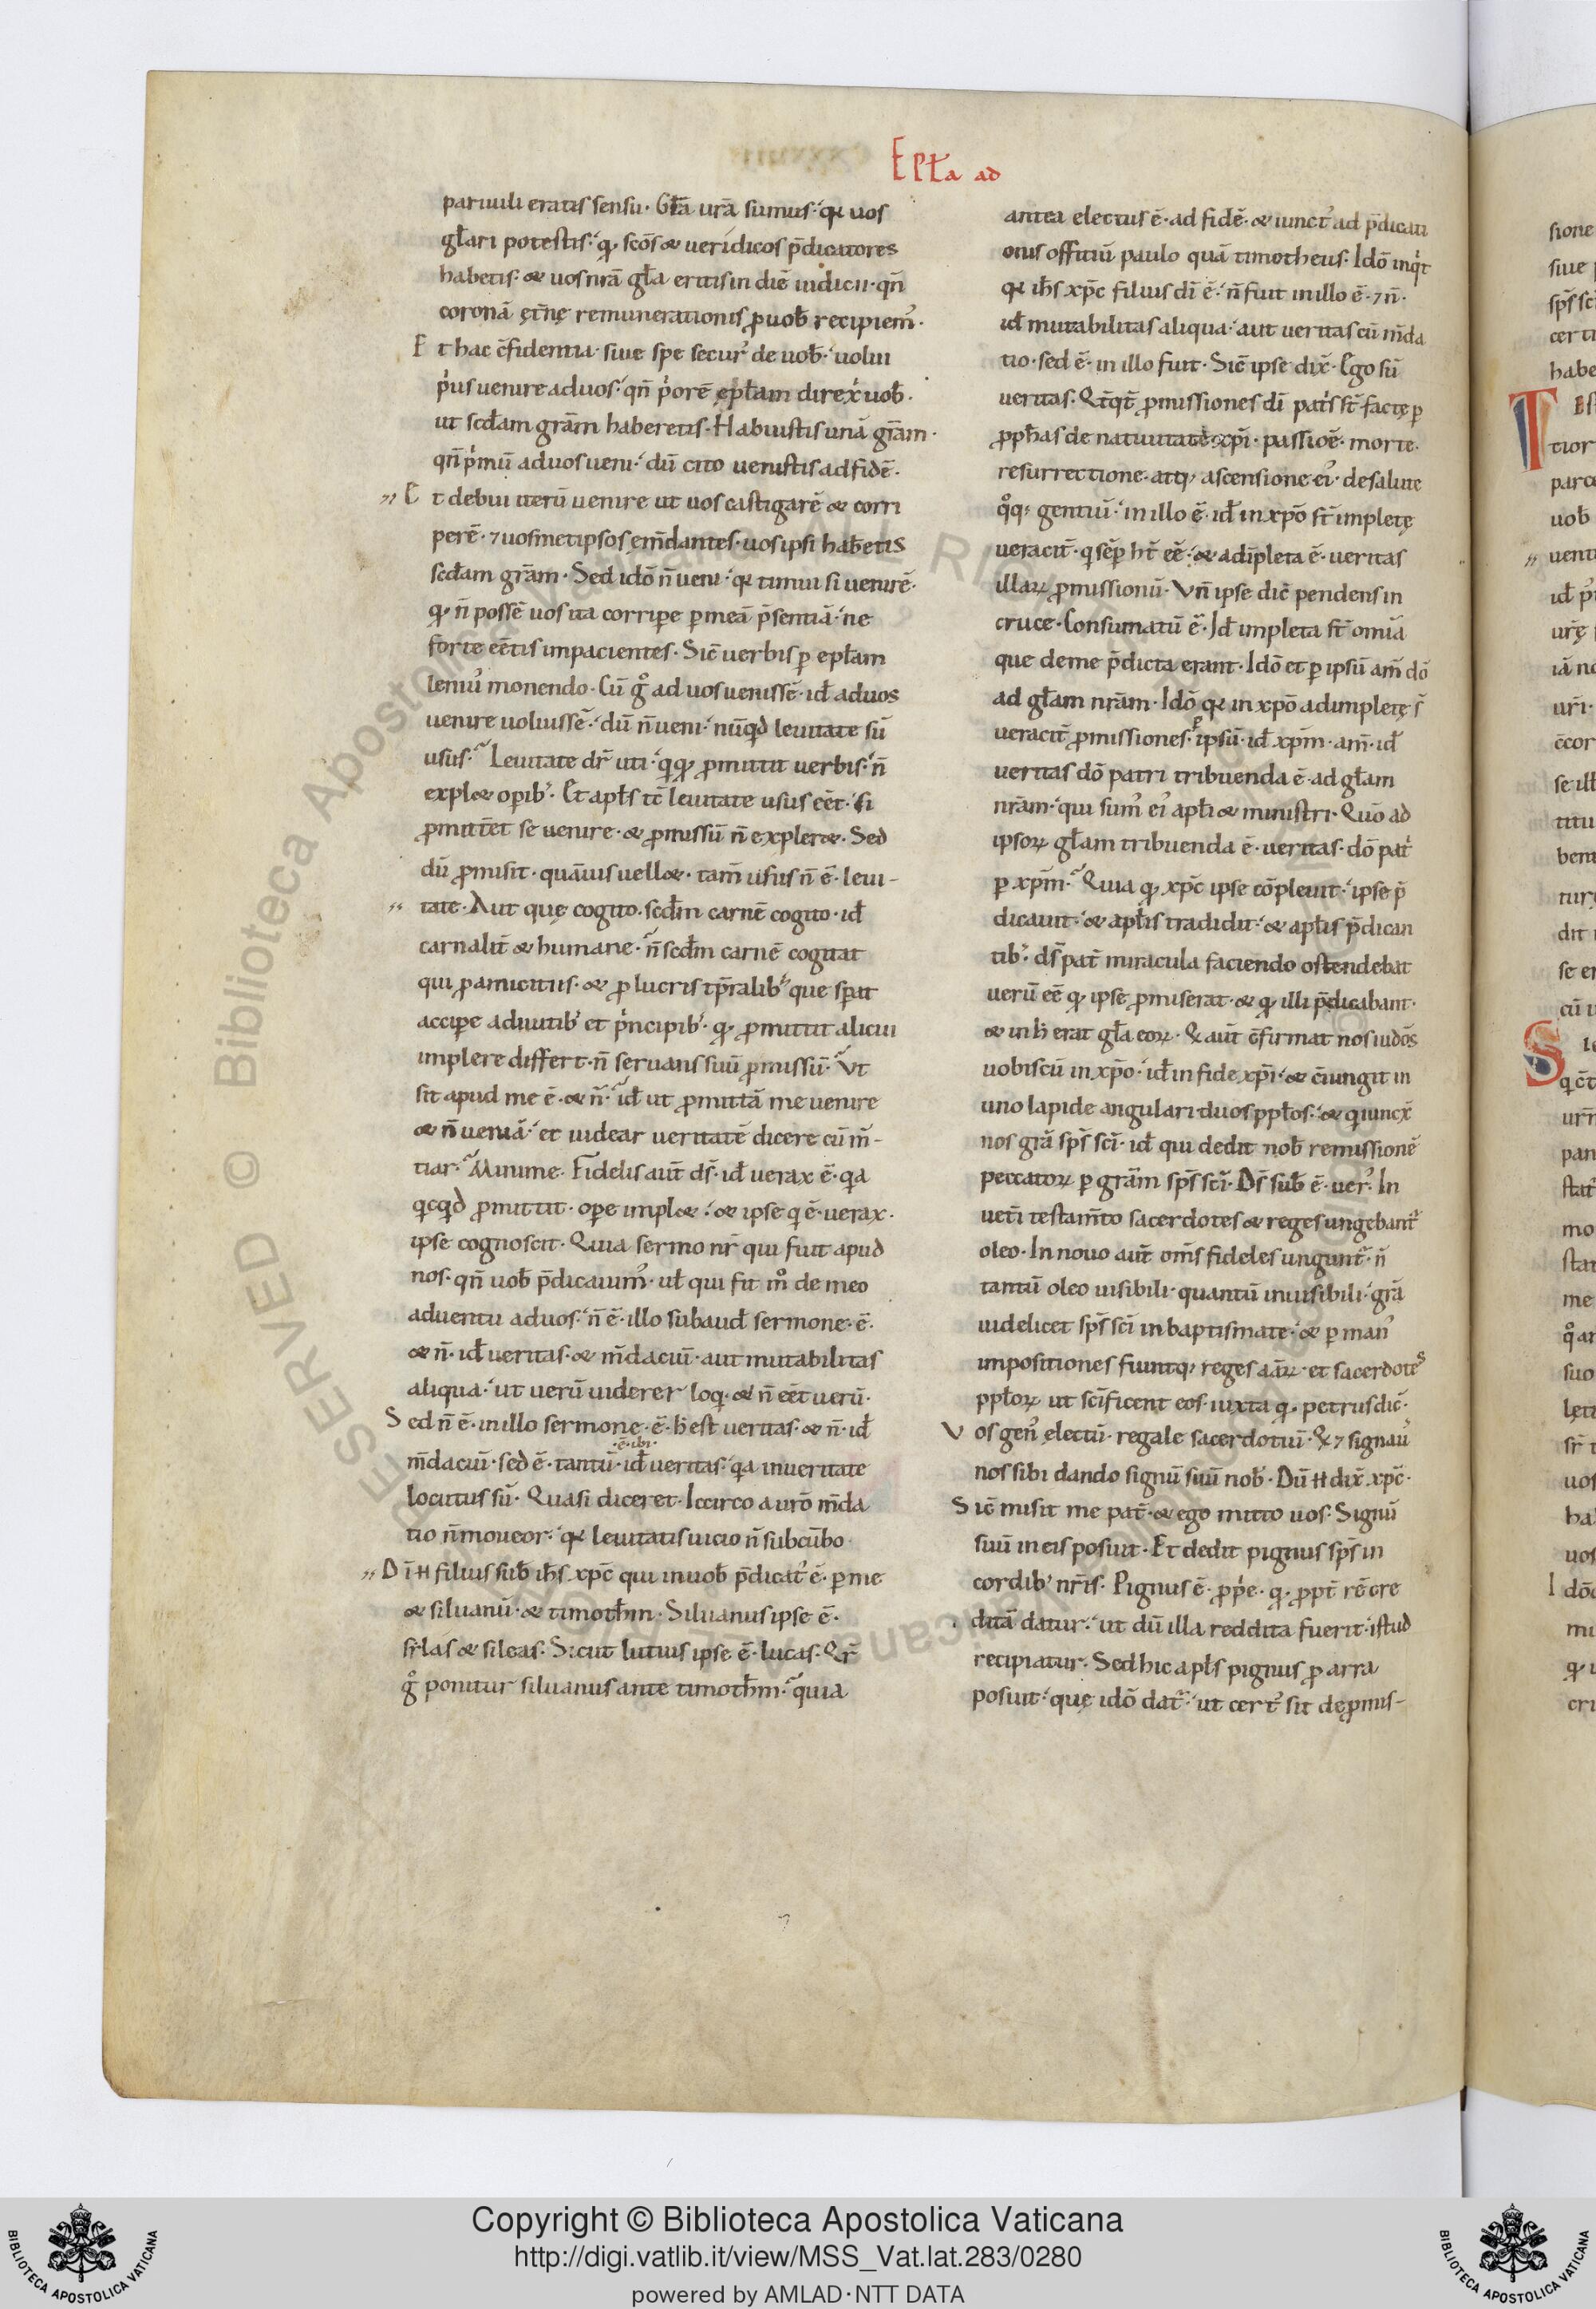 Epła ad
paruuli eratis sensu. Gła urā sumus. qꝛ uos
głari potestis. qꝫ scōs & ueridicos p̄dicatores
habetis. & uos nrā gła eritis in diē iudicii. qn̄
coronā ęt̄nę remunerationis ꝓ uob̄ recipiem᾽.
Et hac c̄fidentia. siue spe secur᾽ de uob̄. uolui
p̓us uenire ad uos. qn̄ p̓orē ępłam direx̓ uob̄.
ut scd̄am gr̄am haberetis. Habuistis unā gr̄am.
qn̄ p̓mū ad uos ueni. dū cito uenistis ad fidē.
Et debui iterū uenire ut uos castigarē & corri
perē. ⁊ uosmetipsos em̄dantes. uos ipsi hab̄etis
scd̄am gr̄am. Sed idō n̄ ueni. qꝛ timui si uenirē.
qꝫ n̄ possē uos ita corripe ꝑ meā p̄sentiā. ne
forte eētis impacientes. Sic̄ uerbis ꝑ epłam
leniu᾽ monendo. Cū gͦ ad uos uenissē. id̄ ad uos
uenire uoluissē. dū n̄ ueni. nūqd leuitate sū
usus. Leuitate dr̄ uti. q̓ qꝫ ꝓmittit uerbis. n̄
expl& opib᾽. Et apłs tc̄ leuitate usus eēt. si
ꝓmitt̄et se uenire. & ꝓmissū n̄ expler&. Sed
dū ꝓmisit. quāuis uell&. tam̄ usus n̄ ē. leui-
tate. Aut quę cogito. scd̄m carnē cogito. id̄
carnalit̄ & humane. n̄ scd̄m carnē cogitat
qui ꝓ amicitiis. & ꝓ lucris tp̄ralib᾽ que sp̄at
accipe a diuitib᾽ et p̓ncipib᾽. qꝫ ꝓmittit alicui
implere differt. n̄ seruans suū ꝓmissū. Vt
sit apud me ē. & n̄. id̄ ut ꝓmittā me uenire
& n̄ ueniā. et uidear ueritatē dicere cū m̄-
tiar. Minime. Fidelis aūt ds̄. id̄ uerax ē. qa
qcqd ꝓmittit. ope impl&. & ipse q ē uerax.
ipse cognoscit. Quia sermo nr̄ qui fuit apud
nos. qn̄ uob̄ p̄dicauim᾽. uł qui fit mͦ de meo
aduentu ad uos. n̄ ē. illo subaud̄ sermone. ē.
& n̄. id̄ ueritas. & m̄daciū. aut mutabilitas
aliqua. ut uerū uiderer loq. & n̄ eēt uerū.
Sed n̄ ē. in illo sermone. ē. h̄ est ueritas. & n̄. id̄
.ē. ibi.
m̄daciū. sed ē. tantū. id̄ ueritas. qa in ueritate
locutus sū. Quasi diceret. Iccirco a uro m̄da
tio n̄ moueor. qꝛ leuitatis uicio n̄ subcūbo
Dī H filius sub̄ ih̄s xp̄c qui in uob̄ p̄dicat᾽ ē. ꝑ me
& siluanū. & timoth̄m. Siluanus ipse ē.
sr̄ las & sileas. Sicut lutius ipse ē. lucas. Qr̄
gͦ ponitur siluanus ante timoth̄m. quia
antea electus ē. ad fidē. & iunct᾽ ad p̄dicati
onis offitiū paulo quā timotheus. Idō inq̓t
qꝛ ih̄s xp̄c filius dī ē. n̄ fuit in illo ē. ⁊ n̄.
id̄ mutabilitas aliqua. aut ueritas cū m̄da
tio. sed ē. in illo fuit. Sic̄ ipse dix̄. Ego sū
ueritas. Qt̄qt̄ ꝓmissiones dī pat̓s st̄ factę ꝑ
ꝓph̄as de natiuitate xp̄i. passioē. morte.
resurrectione. atqꝫ ascensione ei᾽. de salute
qͦqꝫ gentiū. in illo ē. id̄ in xp̄o st̄ impletę
ueracit̄. q sēp ht̄ eē. & adīpleta ē. ueritas
illaꝝ ꝓmissionū. Vn̄ ipse dic̄ pendens in
cruce. Consumatū ē. Id̄ impleta st̄ omīa
que de me p̄dicta erant. Idō et ꝑ ipsū am̄ dō
ad głam nrām. Idō qꝛ in xp̄o adimpletę s̄
ueracit̄ ꝓmissiones. ꝑ ipsū. id̄ xp̄m. am̄. id̄
ueritas dō patri tribuenda ē. ad głam
nrām. qui sum᾽ ei᾽ apłi & ministri. Quō ad
ipsoꝝ głam tribuenda ē. ueritas. dō pat̓
ꝑ xp̄m. Quia qꝫ xp̄c ipse cōpleuit. ipse p̄
dicauit. & apłis tradidit. & apłis p̄dican
tib᾽. ds̄ pat̄ miracula faciendo ostendebat
uerū eē qꝫ ipse ꝓmiserat. & qꝫ illi p̄dicabant.
& in h̄ erat gła eoꝝ. Q aūt c̄firmat nos iudōs
uobiscū in xp̄o. id̄ in fide xp̄i. & c̄iungit in
uno lapide angulari duos ppłos. & q iunx̄
nos grā sp̄s scī. id̄ qui dedit nob̄ remissionē
peccatoꝝ ꝑ gr̄am sp̄s scī. Ds̄ sub̄ ē. uer᾽. In
uet̓i testam̄to sacerdotes & reges ungebant᾽
oleo. In nouo aūt om̄s fideles ungunt᾽. n̄
tantū oleo uisibili. quantū inuisibili. grā
uidelicet sp̄s scī in baptismate. & ꝑ man᾽
impositiones fiuntqꝫ reges aāꝝ. et sacerdotes
ppłoꝝ ut scīficent eos. iuxta qꝫ petrus dic̄.
Vos gen᾽ electū. regale sacerdotiū. Q ⁊ signau᾽
nos sibi dando signū suū nob̄. Dū H dix̄ xp̄c.
Sic̄ misit me pat̄. & ego mitto uos. Signū
suū in eis posuit. Et dedit pignus sp̄s in
cordib᾽ nr̄is. Pignus ē. ꝓp̓e. qꝫ ꝓpt̄ rē cre
ditā datur. ut dū illa reddita fuerit. istud
recipiatur. Sed hic apłs pignus ꝓ arra
posuit. quę idō dat᾽. ut cert᾽ sit de ꝓmis-
Copyright © Biblioteca Apostolica Vaticana
http://digi.vatlib.it/view/MSS_Vat.lat.283/0280
powered by AMLAD·NTT DATA
BIBLIOTECA APOSTOLICA VATICANA
BIBLIOTECA APOSTOLICA VATICANA